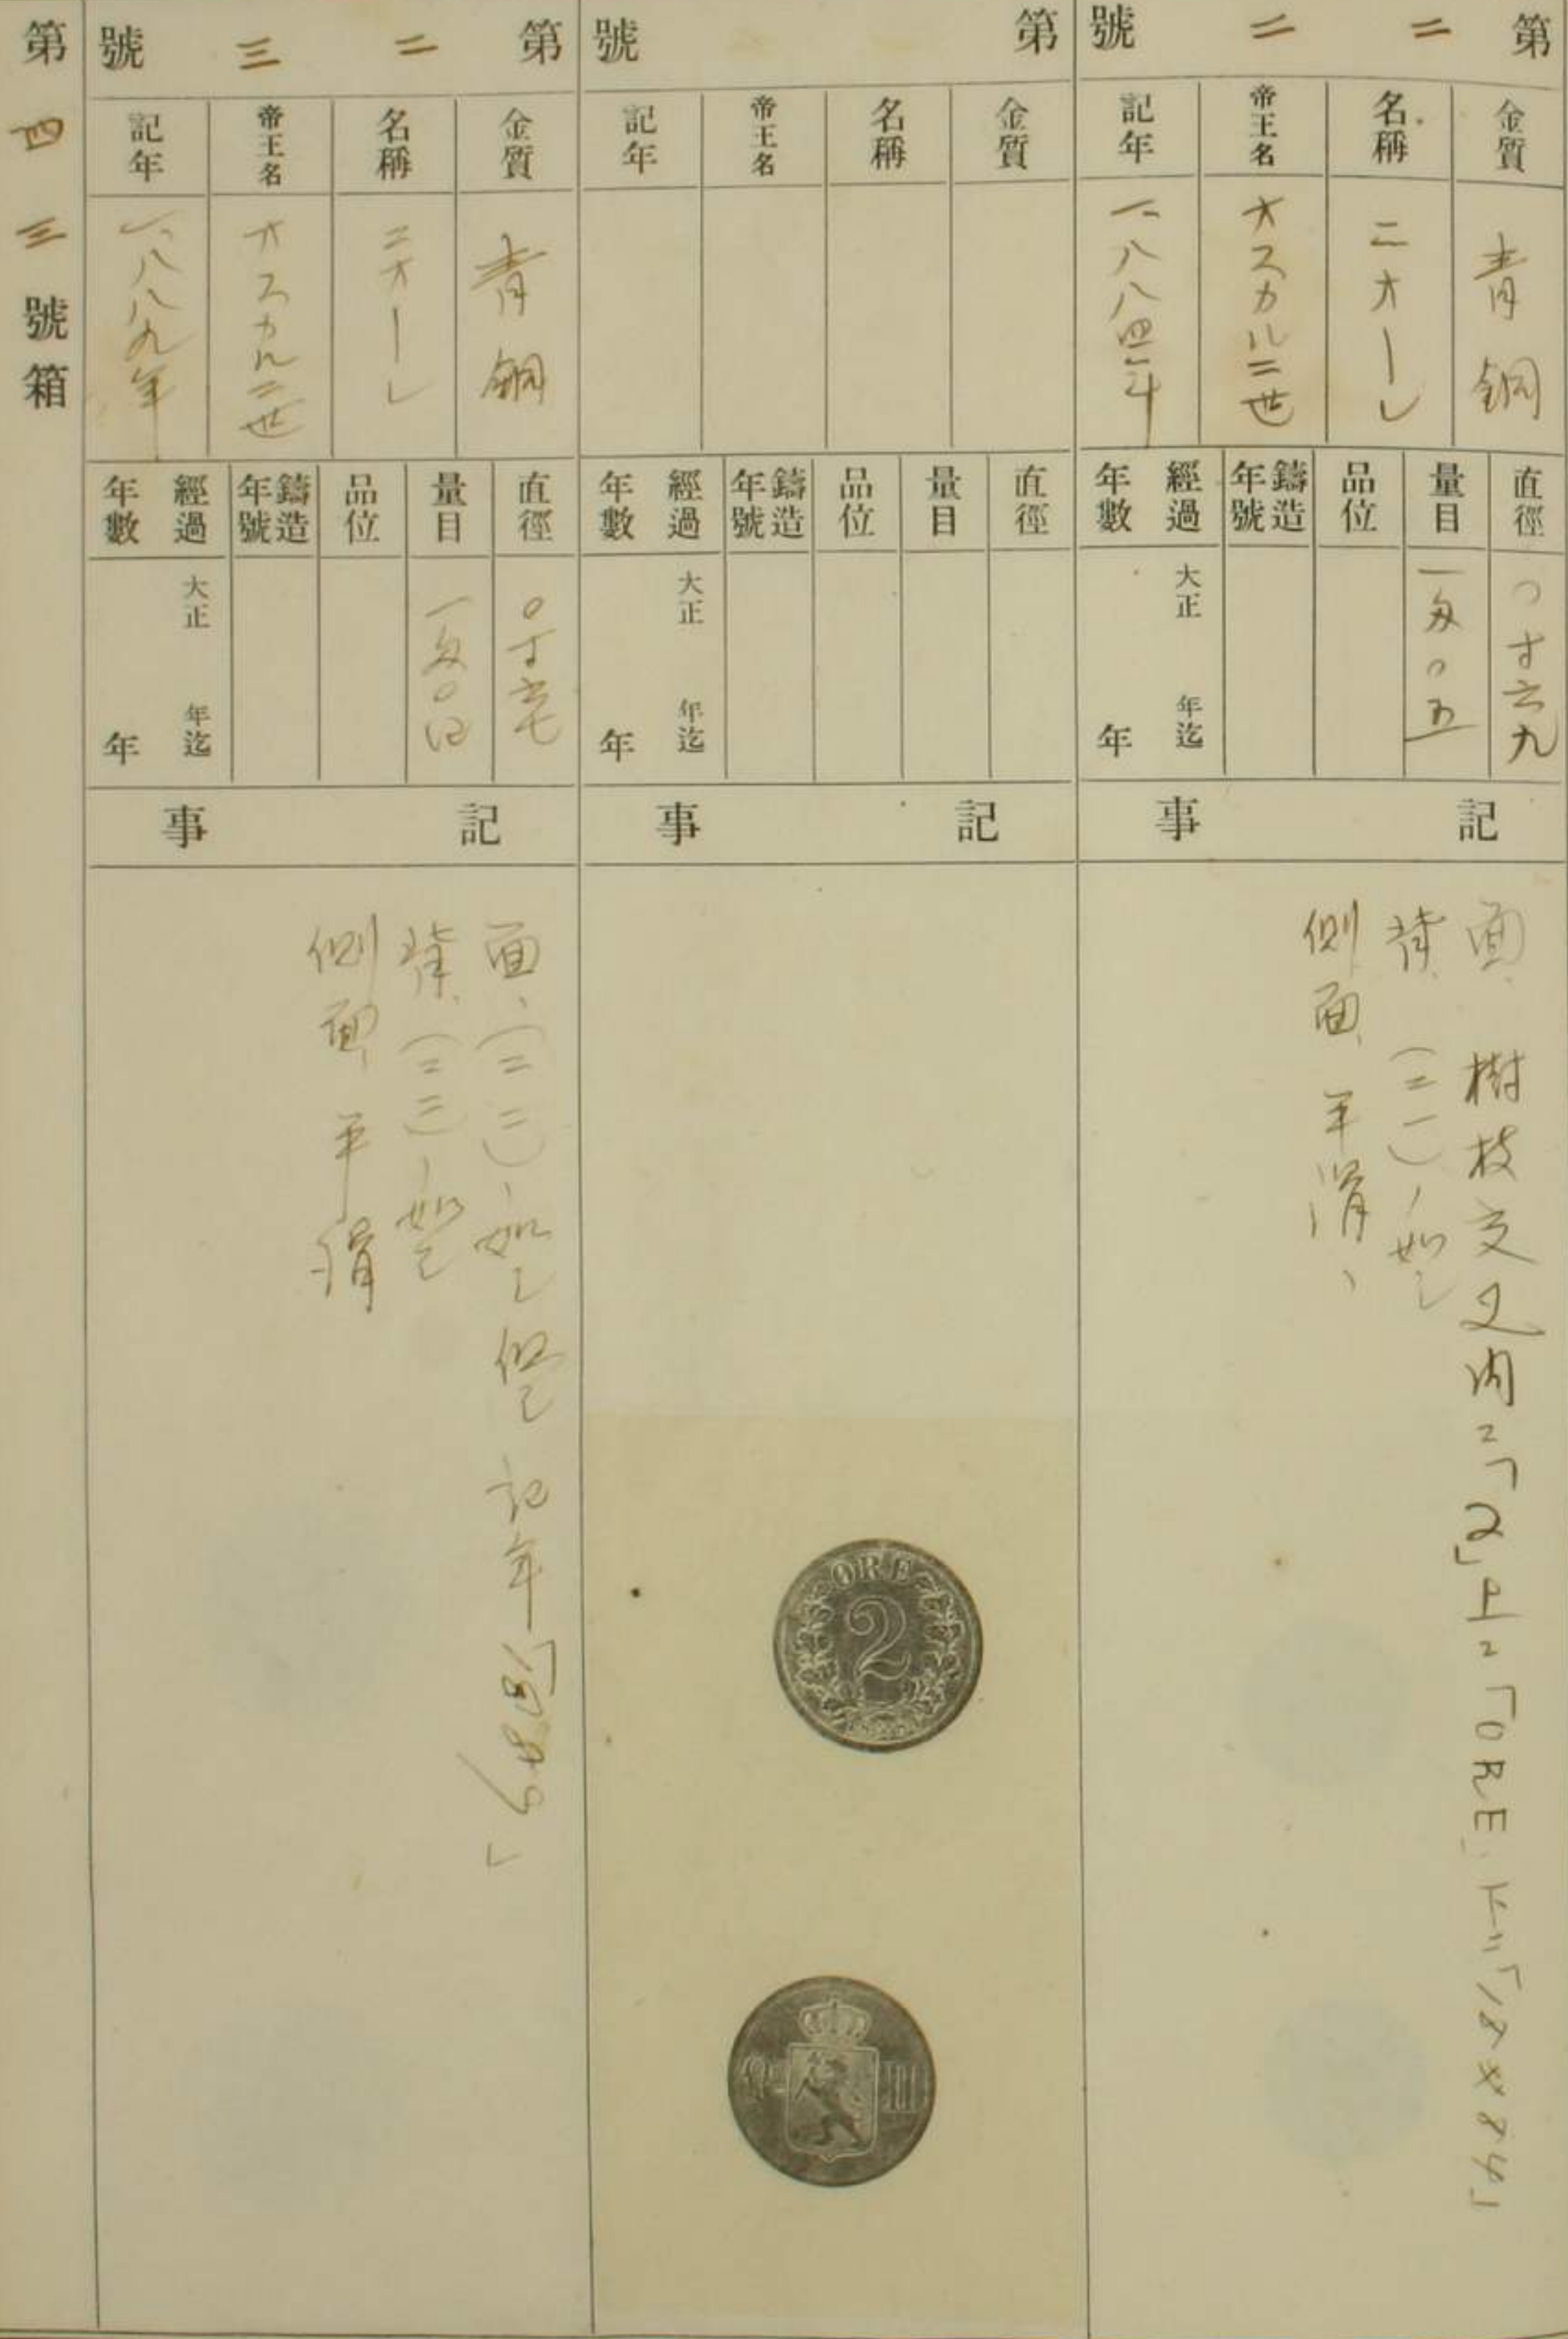 第二二號
金質
青銅
名稱
二オーレ
帝王名
オスカル二世
記年
一八八四年
直徑
〇寸六九
量目
一匁〇五
品位
鑄造年號
經過年數
大正 年迄
年
記事
面、樹枝交叉内ニ「2」上ニ「ORE」下ニ「18
背、(二一)ノ如シ
側面、平滑、
第 號
金質
名稱
帝王名
記年
直徑
量目
品位
鑄造年號
經過年數
大正 年迄
年
記事
ØRE
2
II
第二三號
金質
青銅
名稱
二オーレ
帝王名
オスカル二世
記年
一八八九年
直徑
〇寸六七
量目
一匁〇四
品位
鑄造年號
經過年數
大正 年迄
年
記事
面、(二二)ノ如シ但シ記年「
背、(二二)ノ如シ
側面、平滑
第四三號箱